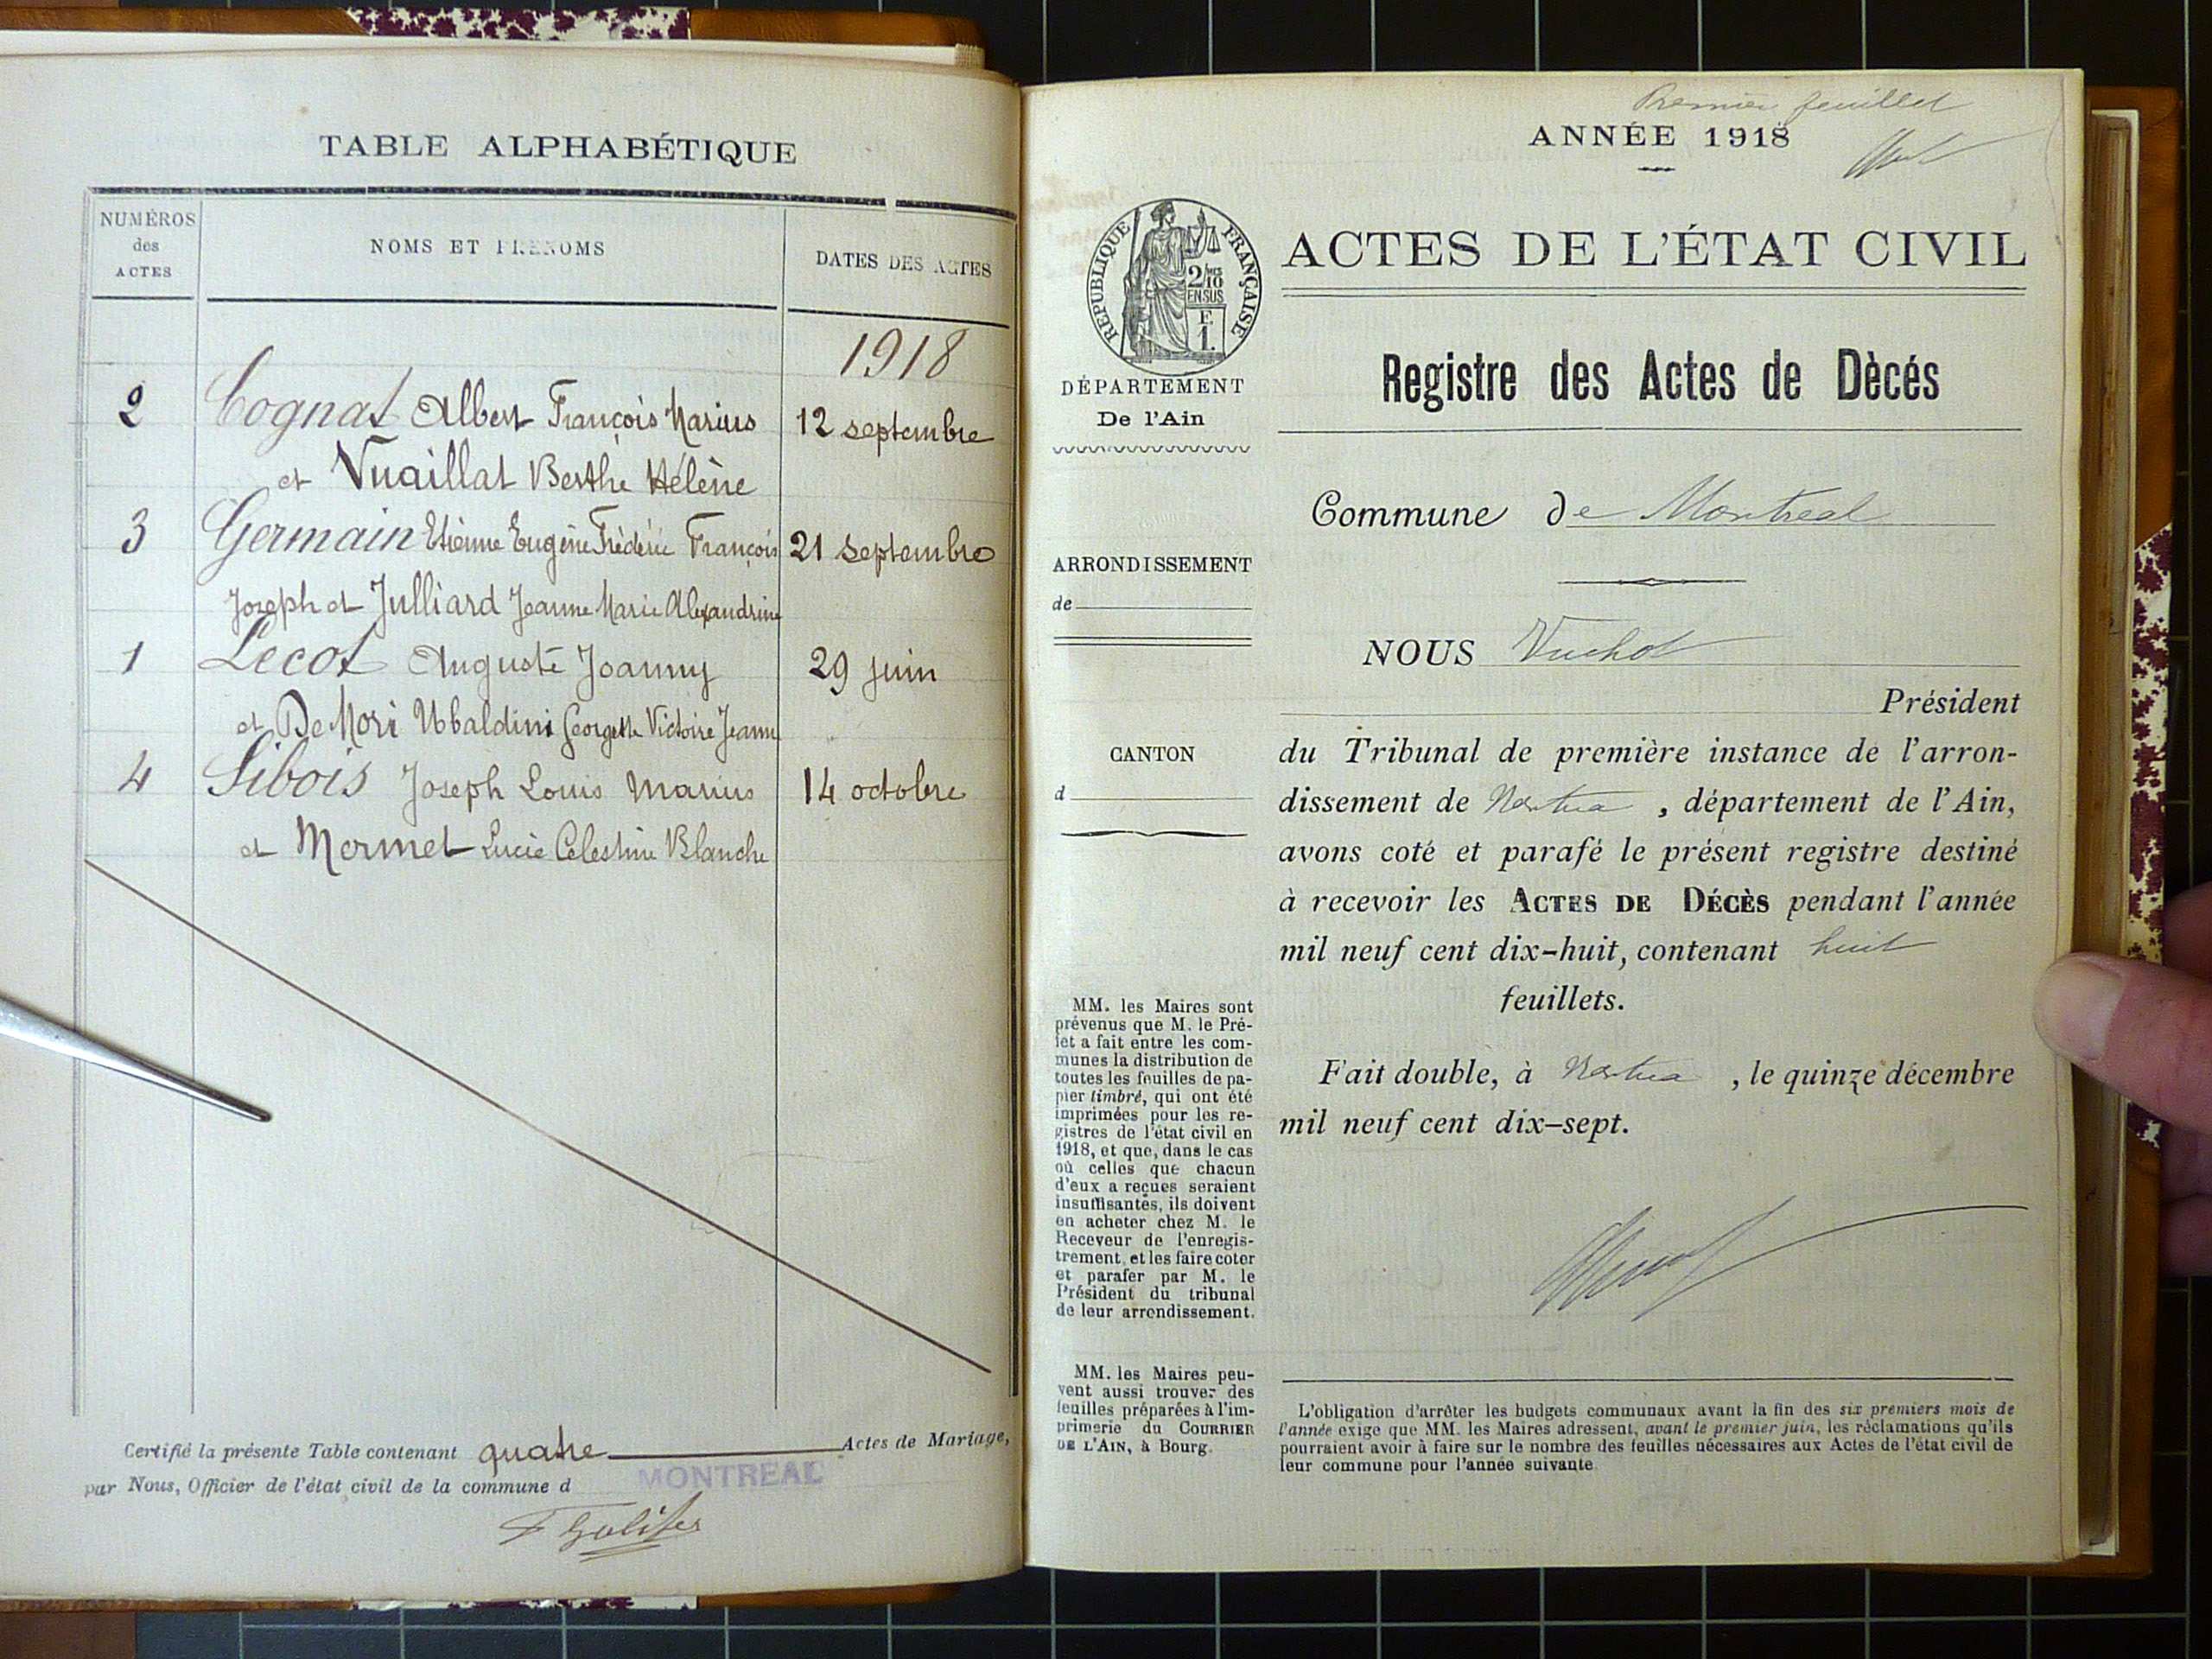 TABLE ALPHABÉTIQUE
NUMÉROS
des
ACTES
NOMS ET PRÉNOMS
DATES DES ACTES
1918
2 Cognat Albert François Marius 12 septembre
et Vuaillat Berthe Hélène
3 Germain Etienne Eugène Frédéric François 21 septembre
Joseph et Julliard Jeanne Marie Alexandrine
1 Lecot Auguste Joanny 29 juin
et De Mori Ubaldini Georgette Victoire Jeanne
4 Sibois Joseph Louis Marius 14 octobre
et Mermet Lucie Célestine Blanche
Certifié la présente Table contenant quatre Actes de Mariage,
par Nous, Officier de l'état civil de la commune d MONTREAL
Premier feuillet
ANNÉE 1918
RÉPUBLIQUE FRANÇAISE
2/10
EN SUS
F.
1.
ACTES DE L'ÉTAT CIVIL
Registre des Actes de Dècés
DÉPARTEMENT
De l'Ain
ARRONDISSEMENT
de
CANTON
d
MM. les Maires sont
prévenus que M. le Pré-
fet a fait entre les com-
munes la distribution de
toutes les feuilles de pa-
pier timbré, qui ont été
imprimées pour les re-
gistres de l'état civil en
1918, et que, dans le cas
où celles que chacun
d'eux a reçues seraient
insuffisantes, ils doivent
en acheter chez M. le
Receveur de l'enregis-
trement, et les faire coter
et parafer par M. le
Président du tribunal
de leur arrondissement.
MM. les Maires peu-
vent aussi trouver des
feuilles préparées à l'im-
primerie du COURRIER
DE L'AIN, à Bourg.
Commune de Montreal
NOUS Vuchot
Président
du Tribunal de première instance de l'arron-
dissement de Nantua, département de l'Ain,
avons coté et parafé le présent registre destiné
à recevoir les ACTES DE DÉCÈS pendant l'année
mil neuf cent dix-huit, contenant huit
feuillets.
Fait double, à Nantua, le quinze décembre
mil neuf cent dix-sept.
L'obligation d'arrêter les budgets communaux avant la fin des six premiers mois de
l'année exige que MM. les Maires adressent, avant le premier juin, les réclamations qu'ils
pourraient avoir à faire sur le nombre des feuilles nécessaires aux Actes de l'état civil de
leur commune pour l'année suivante.